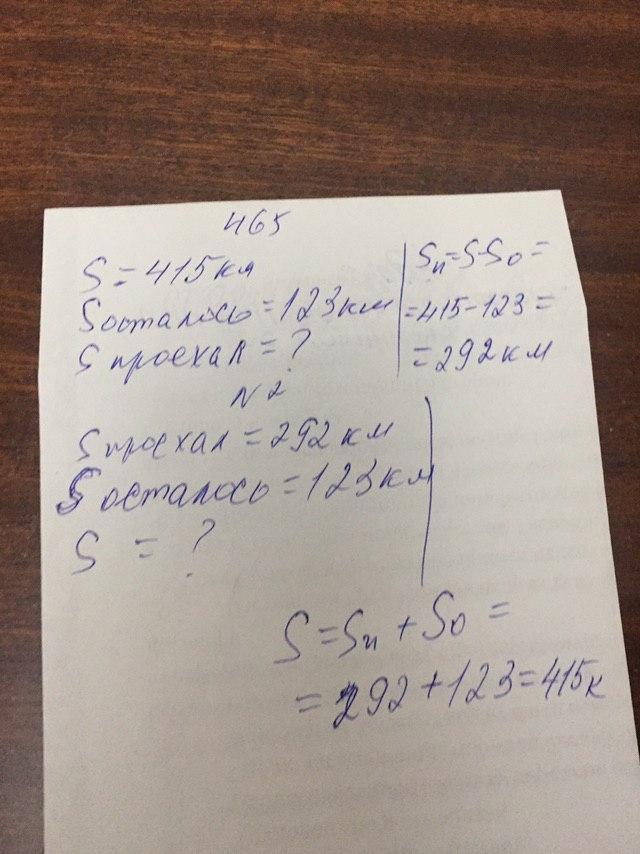 465
S = 415 км
Sосталось = 123 км
S проехал = ?
Sп = S-S₀ =
= 415 - 123 =
= 292 км
N 2
S проехал = 292 км
S осталось = 123 км
S = ?
S = Sп + S₀ =
= 292 + 123 = 415 к